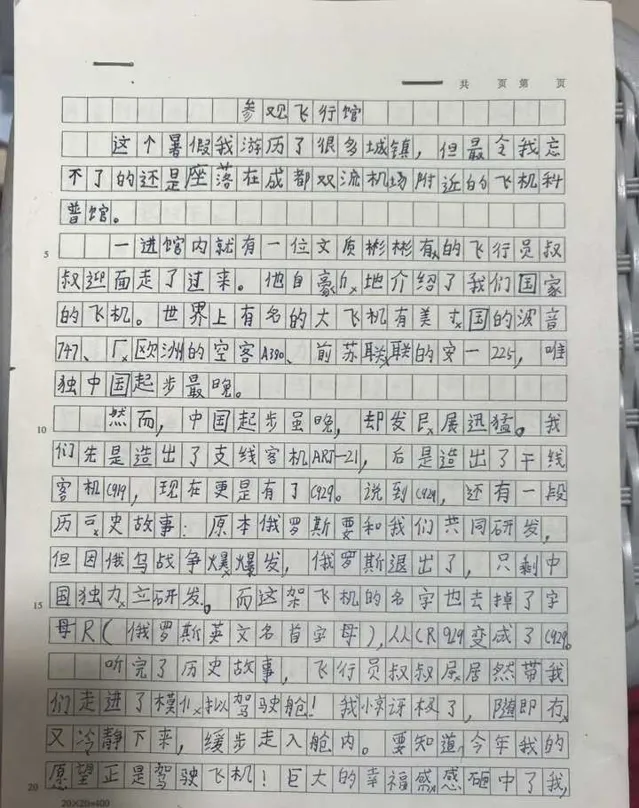 共 页 第 页
参观飞行馆
这个暑假我游历了很多城镇，但最令我忘
不了的还是座落在成都双流机场附近的飞机科
普馆。
5 一进馆内就有一位文质彬彬有的飞行员叔
叔迎面走了过来。他自豪地介绍了我们国家
的飞机。世界上有名的大飞机有美国的波音
747、欧洲的空客A380、前苏联的安—225，唯
独中国起步最晚。
10 然而，中国起步虽晚，却发展迅猛。我
们先是造出了支线客机ARJ-21，后是造出了干线
客机C919，现在更是有了C929。说到C929，还有一段
历史故事：原本俄罗斯要和我们共同研发，
但因俄乌战争爆爆发，俄罗斯退出了，只剩中
15 国独力立研发。而这架飞机的名字也去掉了字
母R（俄罗斯英文名首字母），从CR929变成了C929。
听完了历史故事，飞行员叔叔居然带我
们走进了模拟驾驶舱！我惊讶极了，随即有
又冷静下来，缓步走入舱内。要知道，今年我的
20 愿望正是驾驶飞机！巨大的幸福感感砸中了我，
20×20=400